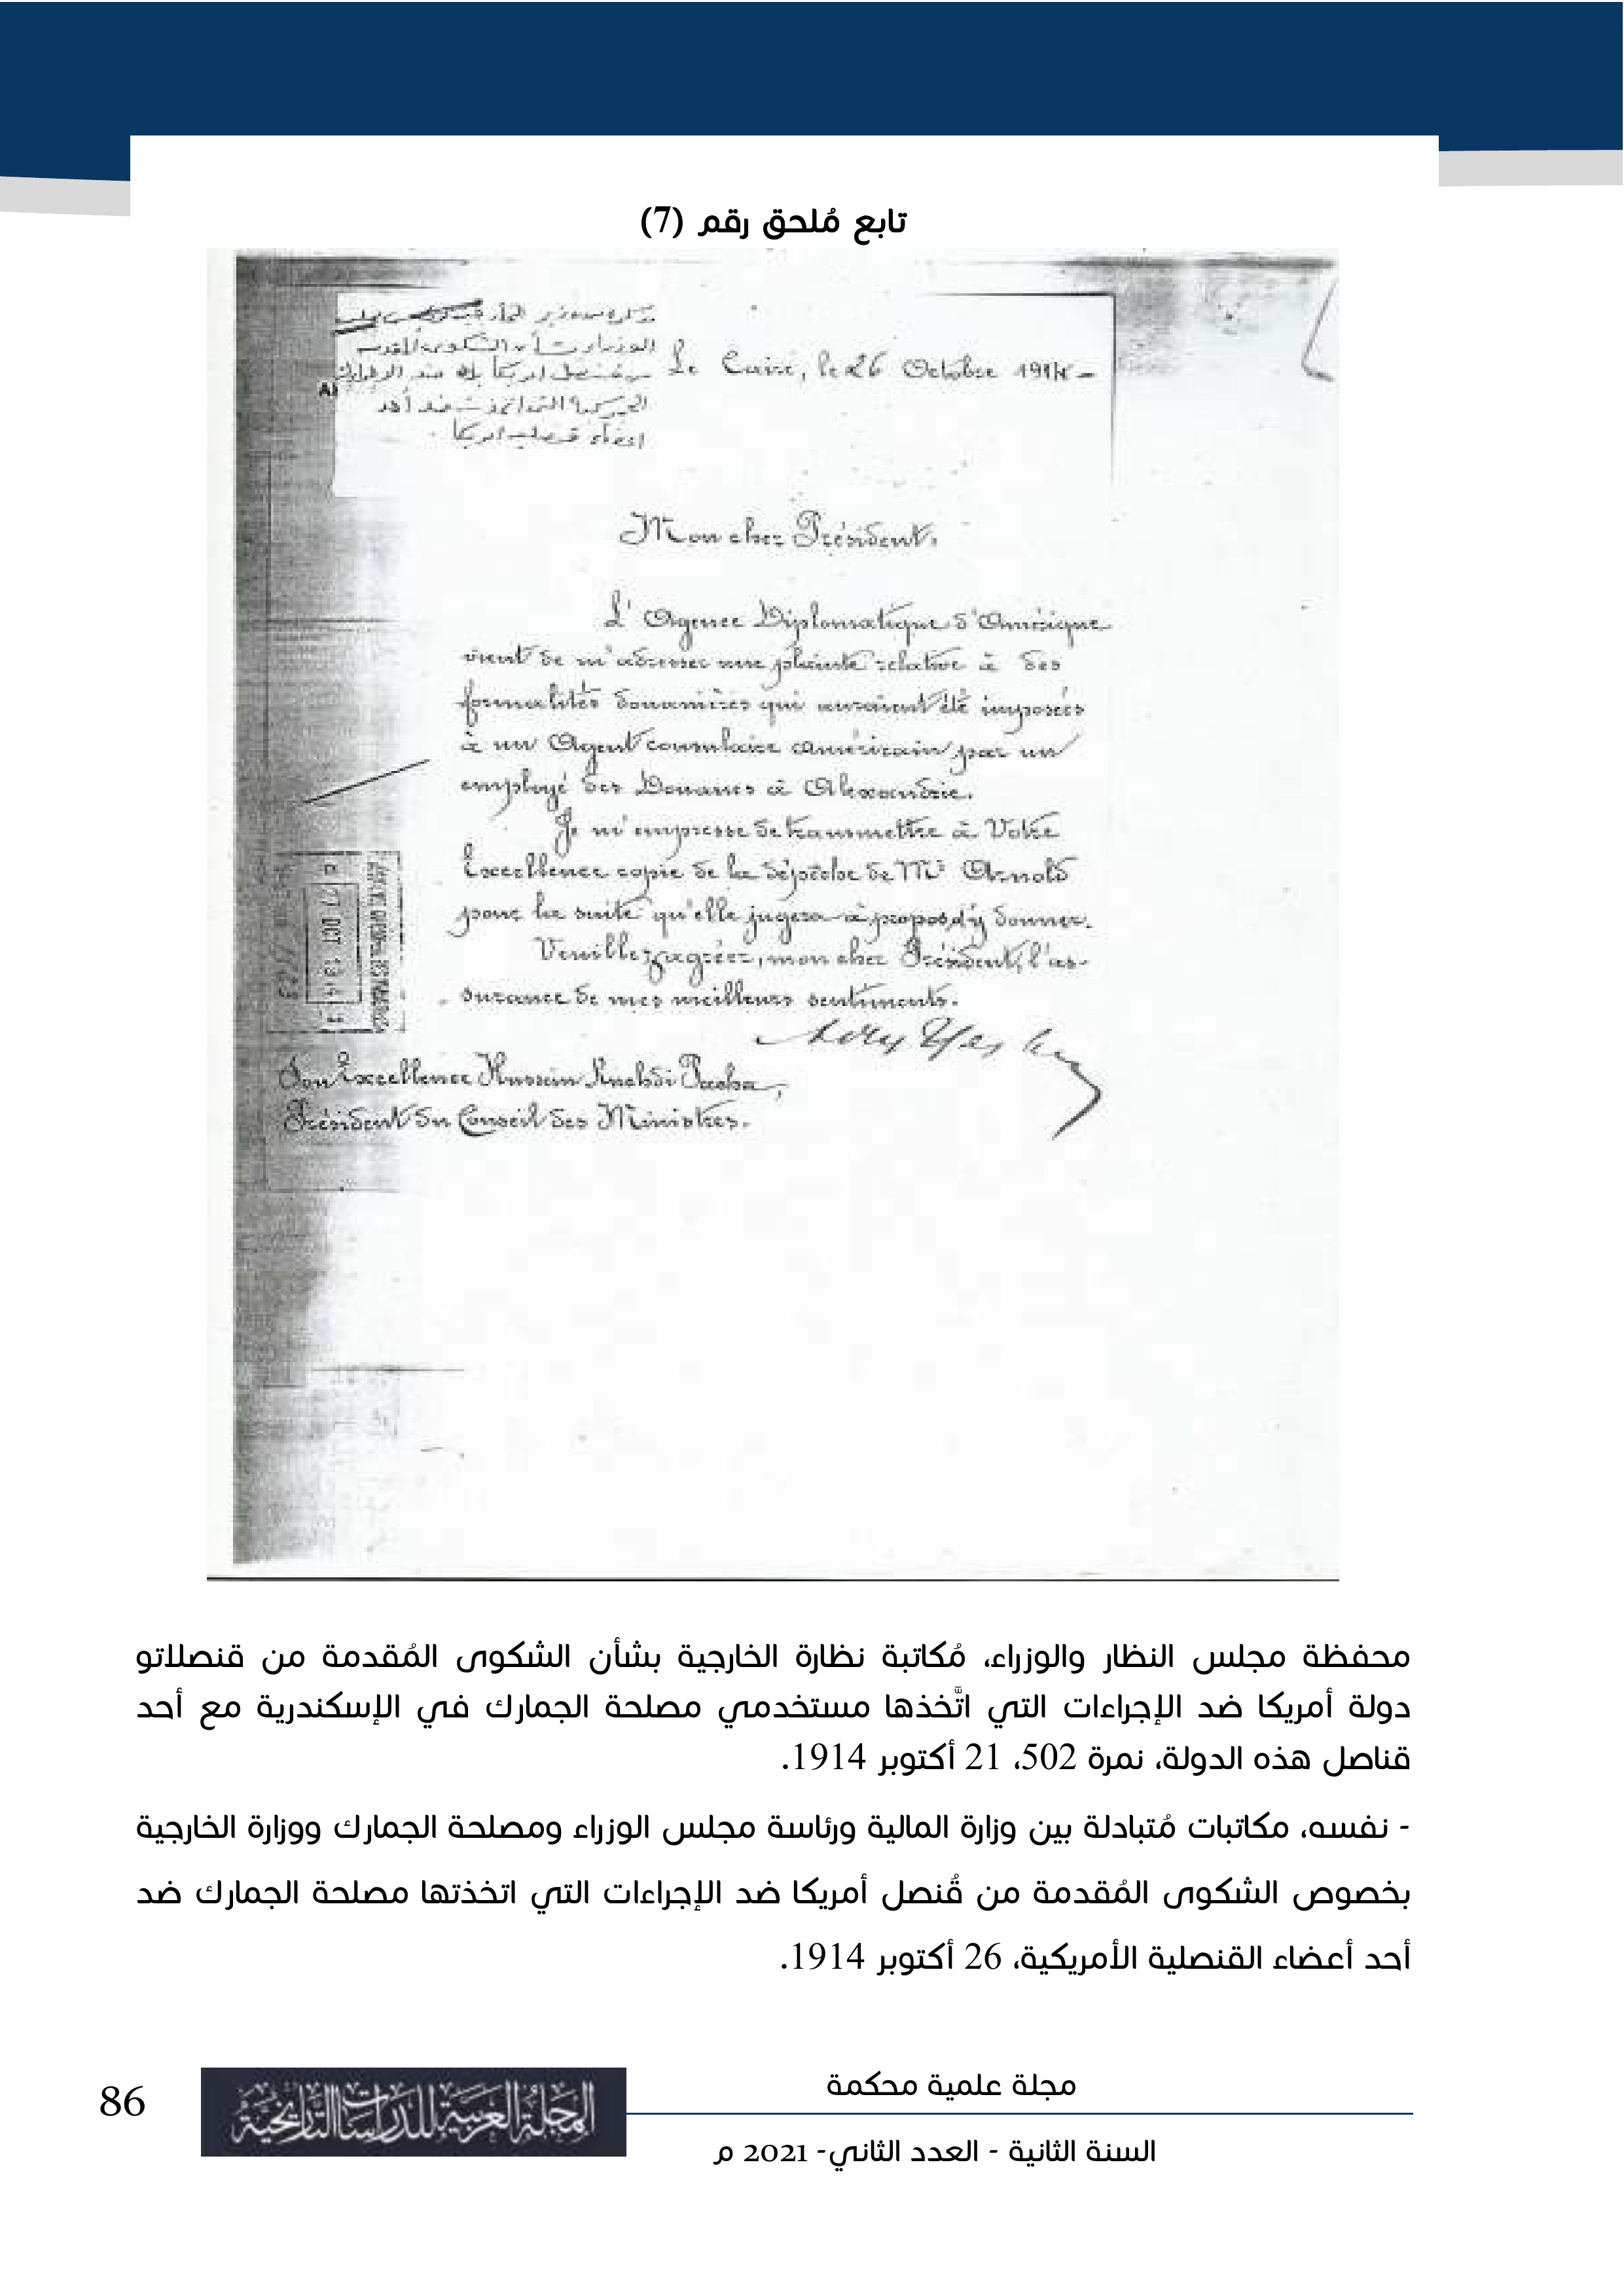 تابع مُلحق رقم (7)
مذكرة من وزير الخارجية مجلس
الوزراء بشأن الشكوى المقدمة
من قنصل امريكا ضد الاجراءات
الجمركية التى اتخذت ضد أحد
اعضاء قنصلية امريكا
Le Caire, le 26 Octobre 1914 -
Mon cher Président.
L'Agence Diplomatique d'Amérique
vient de m'adresser une plainte relative à des
formalités douanières qui auraient été imposées
à un Agent consulaire américain par un
employé des Douanes à Alexandrie.
Je m'empresse de transmettre à Votre
Excellence copie de la dépêche de Mr Arnold
pour la suite qu'elle jugera à propos d'y donner.
Veuillez agréer, mon cher Président, l'as-
surance de mes meilleurs sentiments.
27 OCT 1914
Son Excellence Hussein Ruchdi Pacha,
Président du Conseil des Ministres.
محفظة مجلس النظار والوزراء، مُكاتبة نظارة الخارجية بشأن الشكوى المُقدمة من قنصلاتو
دولة أمريكا ضد الإجراءات التي اتَّخذها مستخدمي مصلحة الجمارك في الإسكندرية مع أحد
قناصل هذه الدولة، نمرة 502، 21 أكتوبر 1914.
- نفسه، مكاتبات مُتبادلة بين وزارة المالية ورئاسة مجلس الوزراء ومصلحة الجمارك ووزارة الخارجية
بخصوص الشكوى المُقدمة من قُنصل أمريكا ضد الإجراءات التي اتخذتها مصلحة الجمارك ضد
أحد أعضاء القنصلية الأمريكية، 26 أكتوبر 1914.
مجلة علمية محكمة
المجلة العربية للدراسات التاريخية
86
السنة الثانية - العدد الثاني- 2021 م